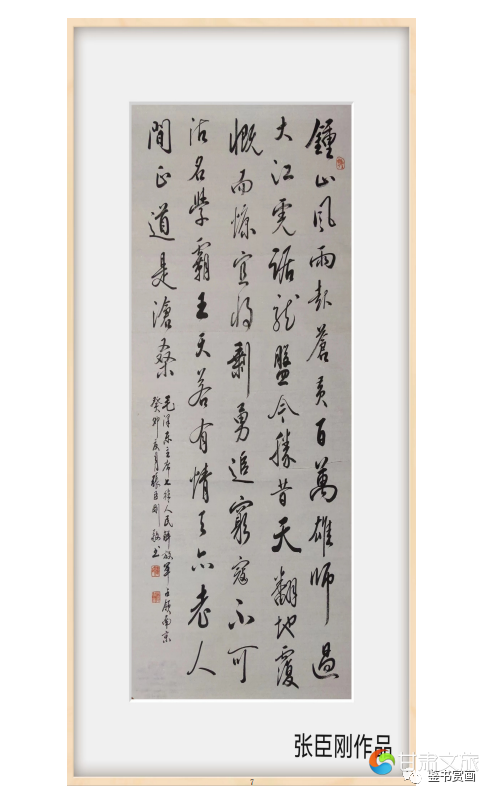 鍾山风雨起蒼黄百萬雄师過
大江虎踞龙盤今勝昔天翻地覆
慨而慷宜将剩勇追窮寇不可
沽名學霸王天若有情天亦老人
間正道是滄桑
毛泽东主席七律人民解放軍占领南京
癸卯月張臣刚书
张臣刚作品
甘肃文旅
鉴书赏画
7